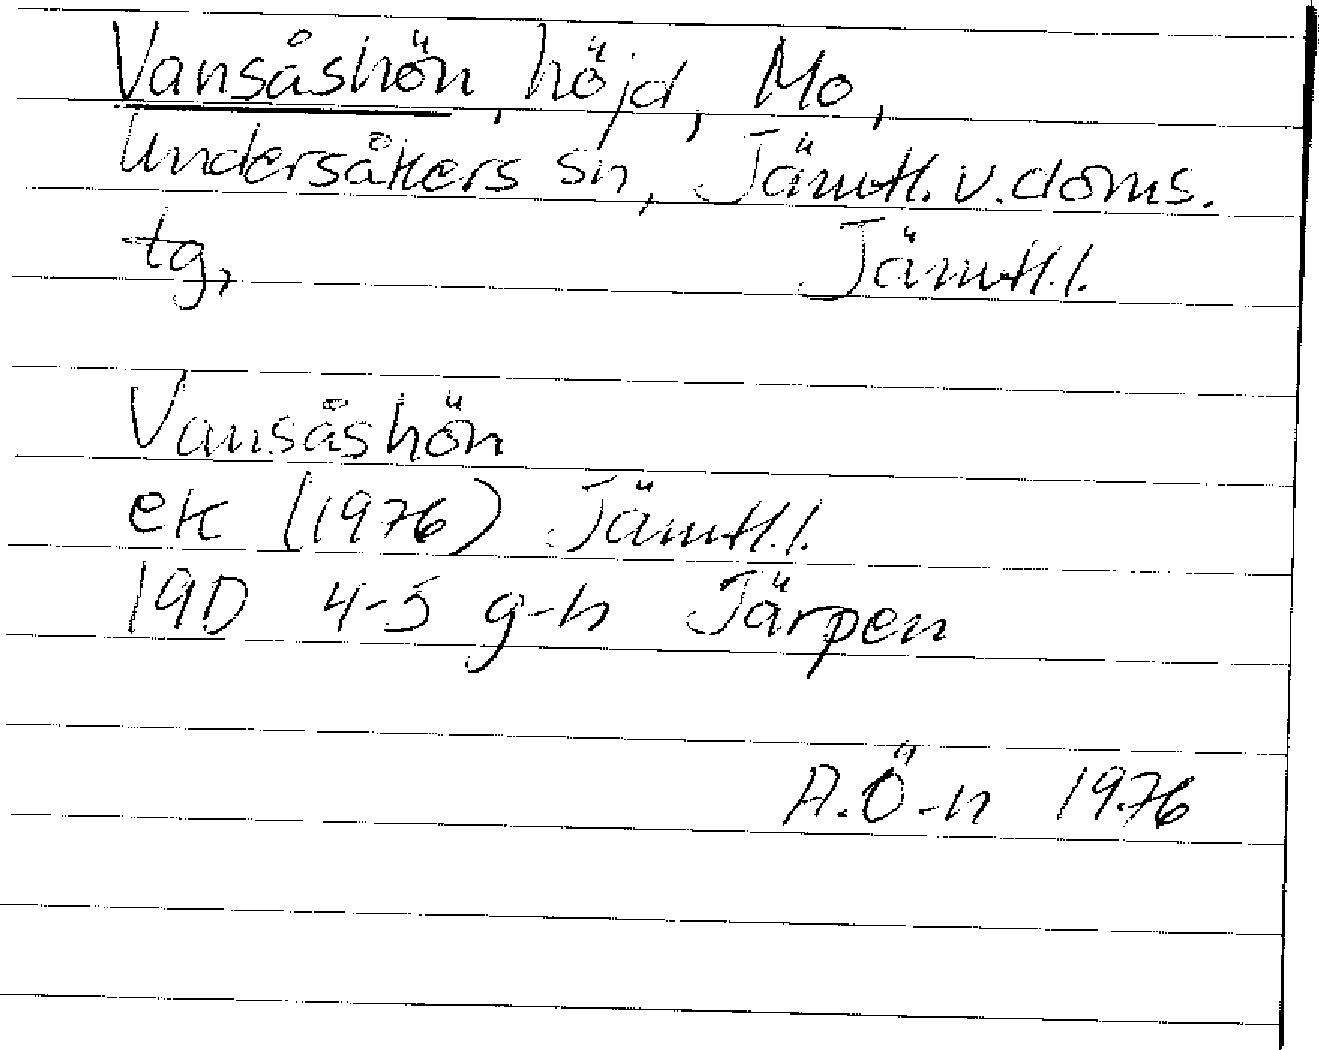 Vansåshön, höjd, Mo,
Undersåkers sn, Jämtl. v. doms.
tg, Jämtl.l.
Vansåshön
ek (1976) Jämtl.l.
19D 4-5 g-h Järpen
A.Ö-n 1976